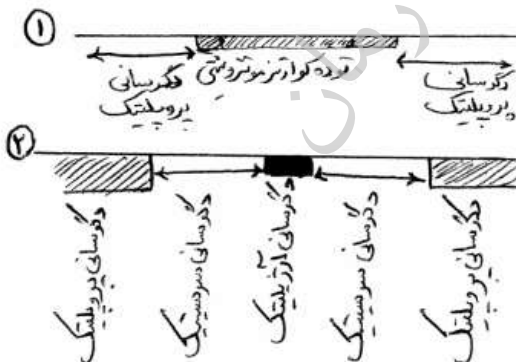 ۱
دگرسانی پروپلیتیک
توده کوارتز مونزونیتی
دگرسانی پروپلیتیک
۲
دگرسانی پروپلیتیک
دگرسانی سرسیتیک
دگرسانی آرژیلیتیک
دگرسانی سرسیتیک
دگرسانی پروپلیتیک